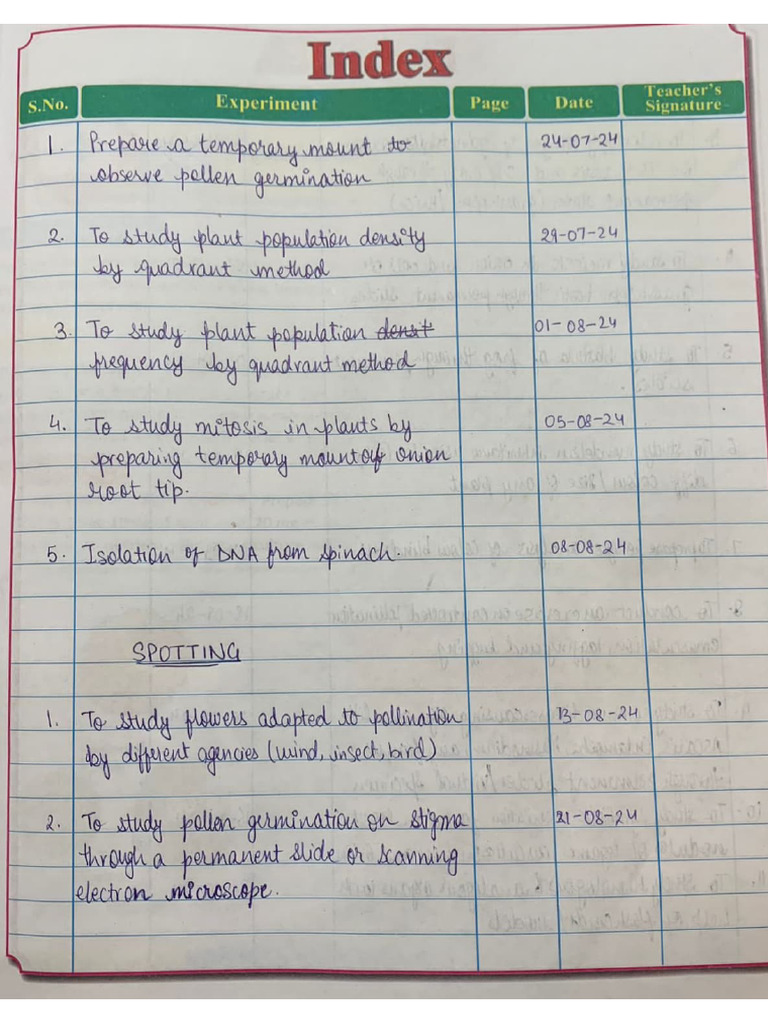 Index
S.No. Experiment Page Date Teacher's Signature
1. Prepare a temporary mount to 24-07-24
observe pollen germination
2. To study plant population density 29-07-24
by quadrant method
3. To study plant population densit 01-08-24
frequency by quadrant method
4. To study mitosis in plants by 05-08-24
preparing temporary mount of onion
root tip.
5. Isolation of DNA from spinach. 08-08-24
SPOTTING
1. To study flowers adapted to pollination 13-08-24
by different agencies (wind, insect, bird)
2. To study pollen germination on stigma 21-08-24
through a permanent slide or scanning
electron microscope.